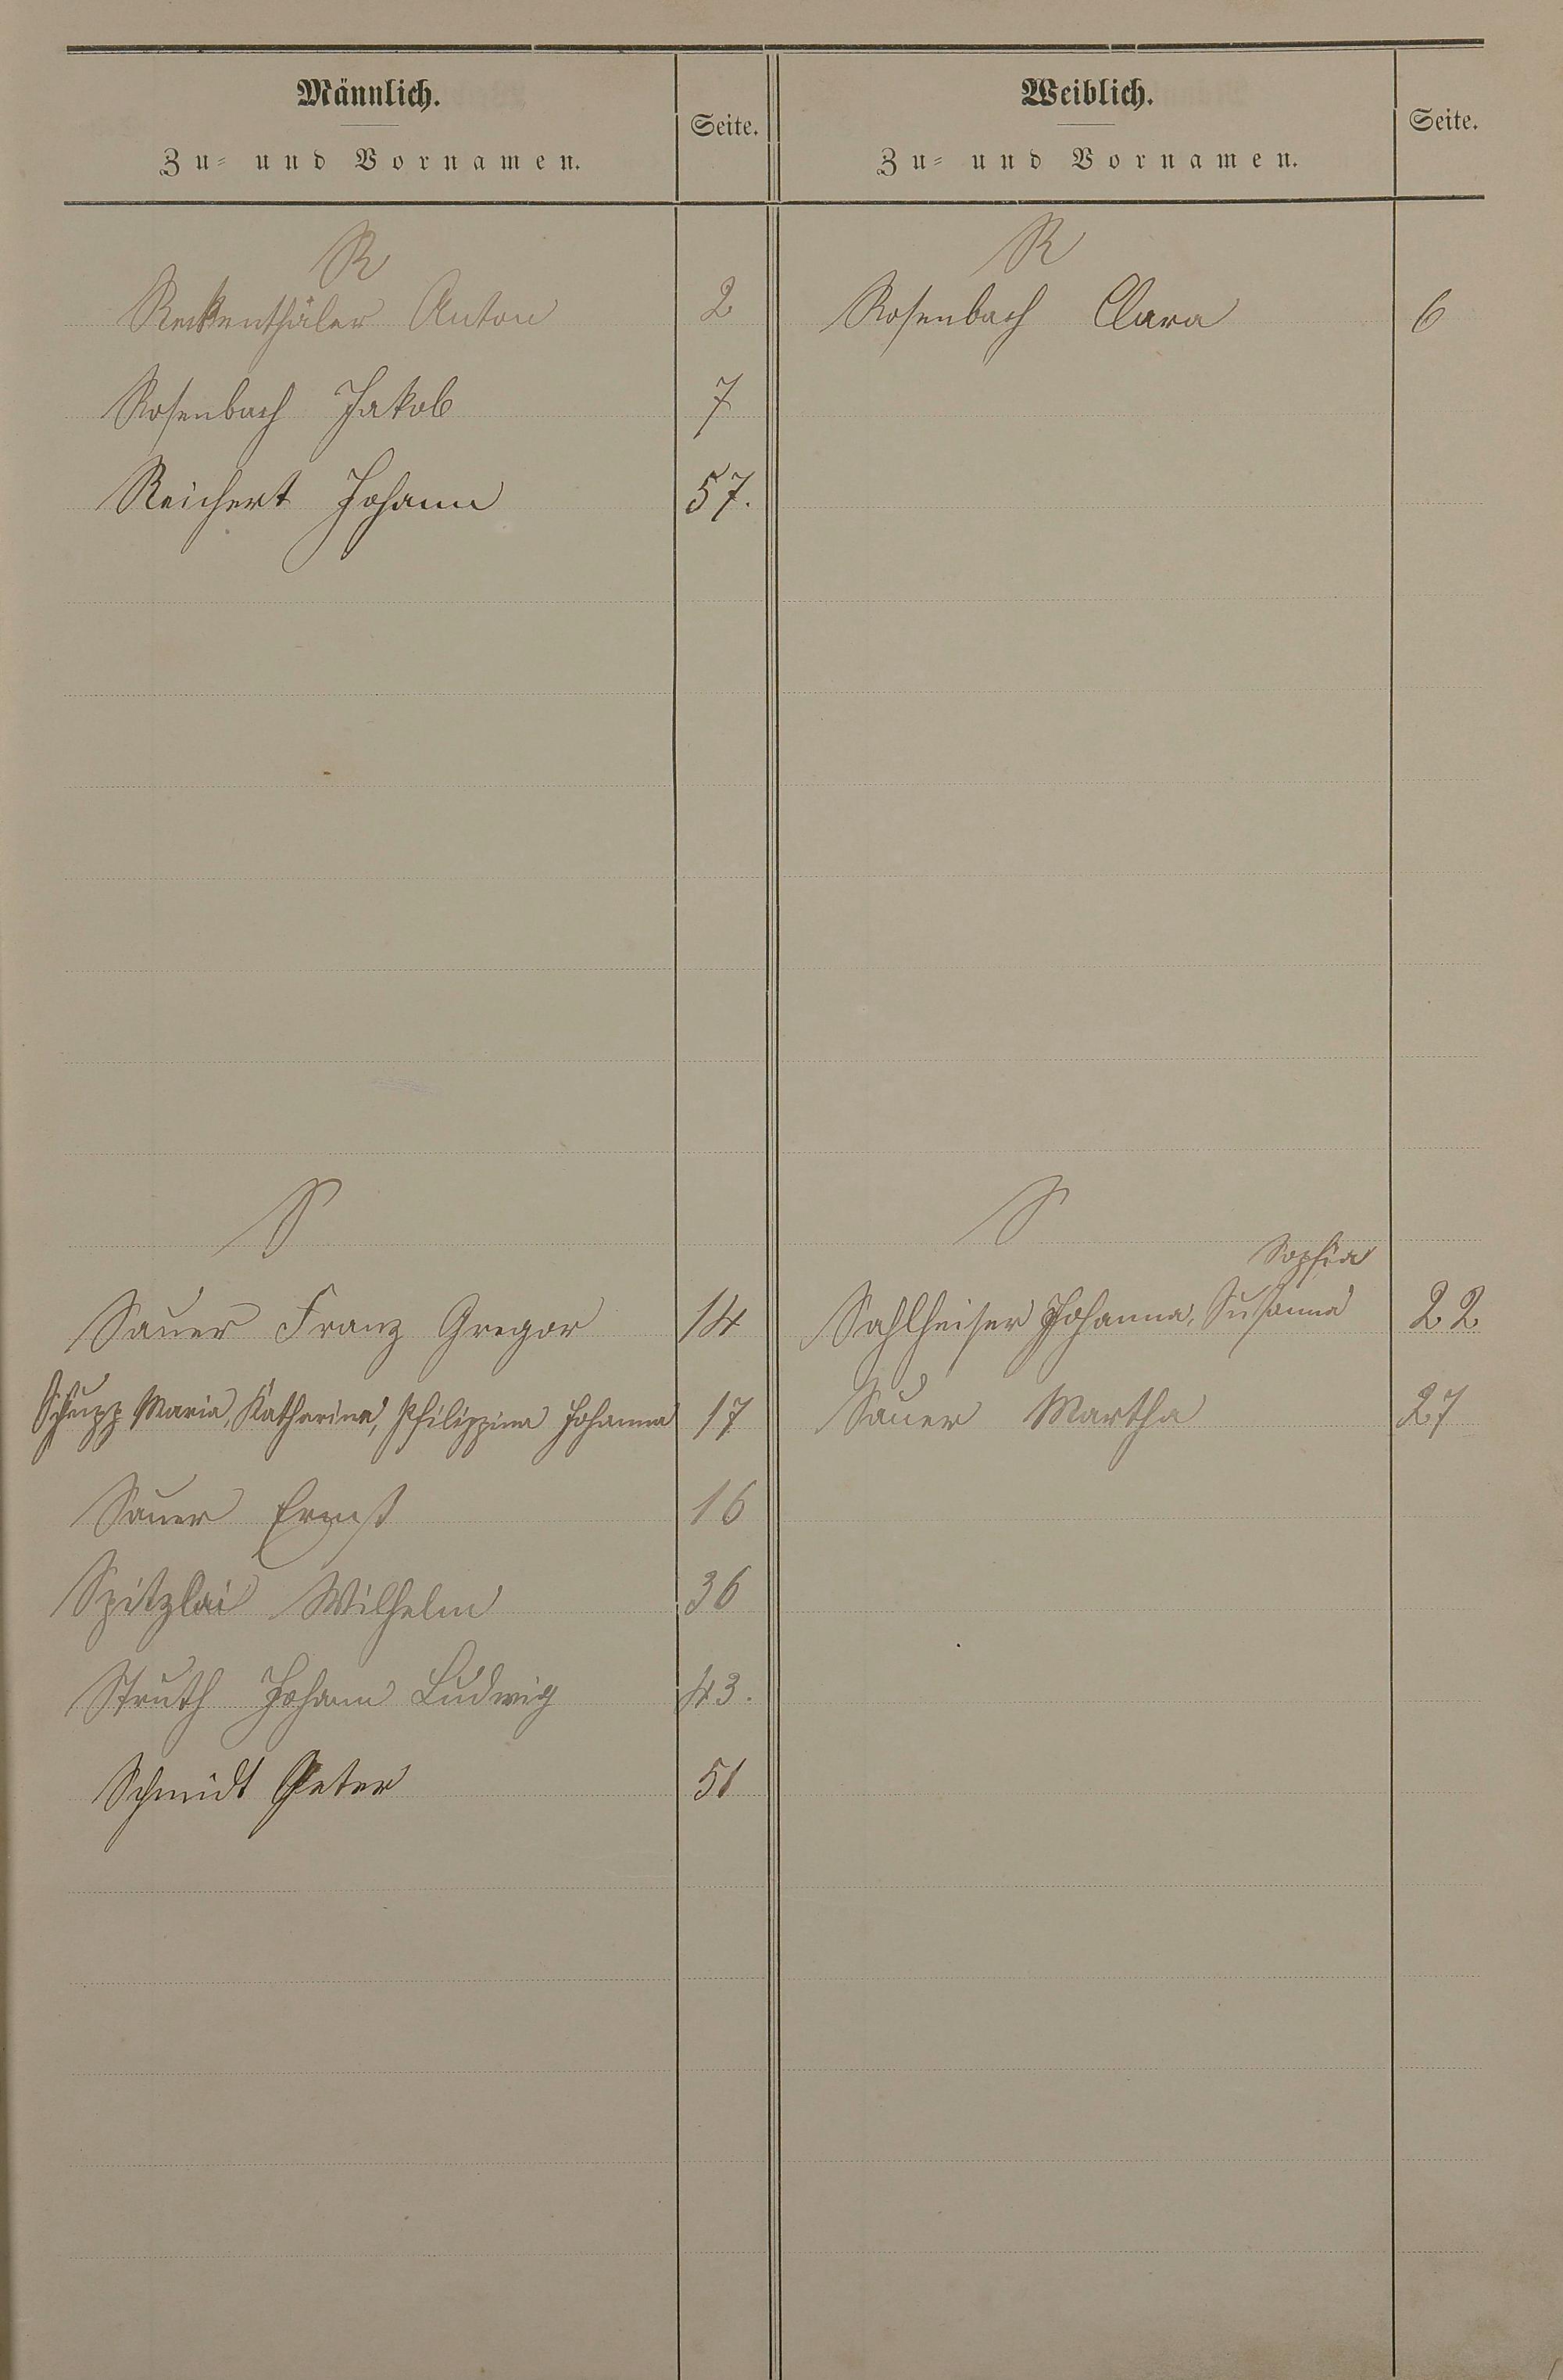 Männlich.
Zu- und Vornamen.
Seite.
R
Reckenthäler Anton 2
Rosenbach Jakob 7
Reichert Johann 57.
S
Sauer Franz Gregor 14
Schupp Maria, Katharina, Philippina Johanna 17
Sauer Ernst 16
Spitzlai Wilhelm 36
Struth Johann Ludwig 43.
Schmidt Peter 51
Weiblich.
Zu- und Vornamen.
Seite.
R
Rosenbach Clara 6
S
Sophia
Sahlheiser Johanna, Susanna 22
Sauer Martha 27